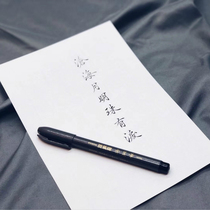 沧海月明珠有泪